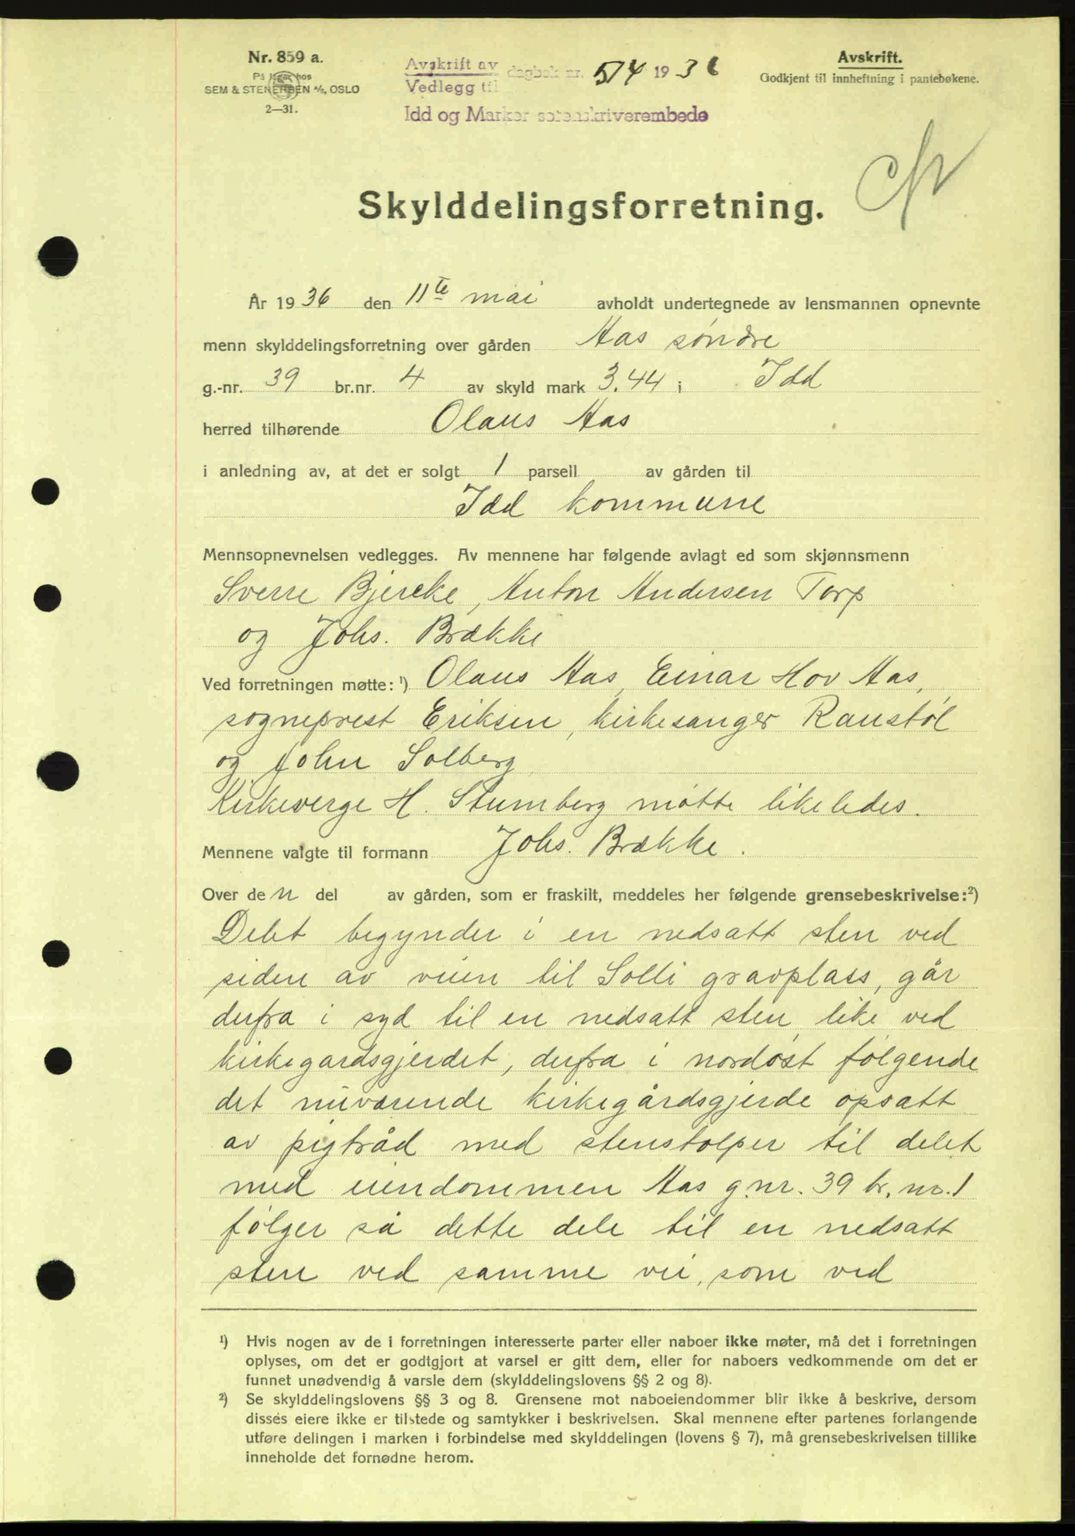 Nr. 859 a.
På lager hos
SEM & STENERSEN A/S, OSLO
2—31.
Avskrift av dagbok nr. 514 1936
Vedlegg til
Idd og Marker sorenskriverembede
Avskrift.
Godkjent til innheftning i pantebøkene.
Skylddelingsforretning.
År 1936 den 11te mai avholdt undertegnede av lensmannen opnevnte
menn skylddelingsforretning over gården Aas søndre
g.-nr. 39 br.nr. 4 av skyld mark 3.44 i Idd
herred tilhørende Olaus Aas
i anledning av, at det er solgt 1 parsell av gården til
Idd kommune
Mennsopnevnelsen vedlegges. Av mennene har følgende avlagt ed som skjønnsmenn
Sverre Bjercke, Anton Andersen Torp
og Johs. Brække
Ved forretningen møtte: ¹) Olaus Aas, Einar Hov Aas,
sogneprest Eriksen, kirkesanger Raustøl
og John Solberg
Kirkeverge H. Stumberg møtte likeledes.
Mennene valgte til formann Johs. Brække.
Over den del av gården, som er fraskilt, meddeles her følgende grensebeskrivelse: ²)
Delet begynder i en nedsatt sten ved
siden av veien til Solli gravplass, går
derfra i syd til en nedsatt sten like ved
kirkegardsgjerdet, derfra i nordøst følgende
det nuværende kirkegårdsgjerde opsatt
av pigtråd med stenstolper til delet
med eiendommen Aas g.nr. 39 br.nr. 1
følger så dette dele til en nedsatt
sten ved samme vei, som ved
¹) Hvis nogen av de i forretningen interesserte parter eller naboer ikke møter, må det i forretningen
oplyses, om det er godtgjort at varsel er gitt dem, eller for naboers vedkommende om det er
funnet unødvendig å varsle dem (skylddelingslovens §§ 2 og 8).
²) Se skylddelingslovens §§ 3 og 8. Grensene mot naboeiendommer blir ikke å beskrive, dersom
disses eiere ikke er tilstede og samtykker i beskrivelsen. Skal mennene efter partenes forlangende
utføre delingen i marken i forbindelse med skylddelingen (lovens § 7), må grensebeskrivelsen tillike
inneholde det fornødne herom.